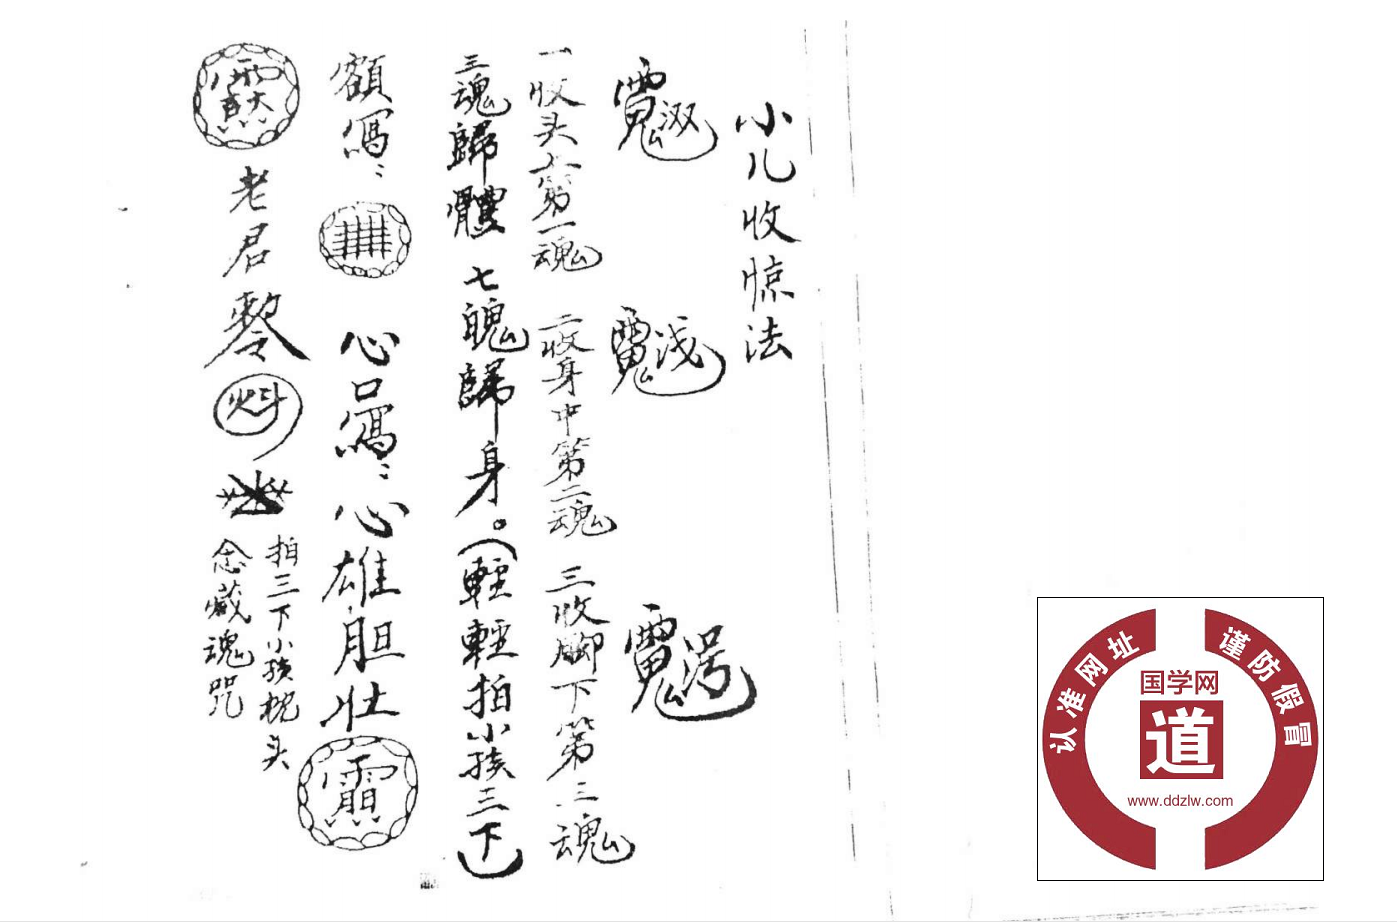 小儿收惊法
一收头上第一魂 二收身中第二魂 三收脚下第三魂
三魂歸體 七魄歸身。(輕輕拍小孩三下)
額寫:
心口寫: 心雄胆壮
老君
拍三下小孩枕头
念藏魂咒
认准网址 谨防假冒
国学网
道
www.ddzlw.com